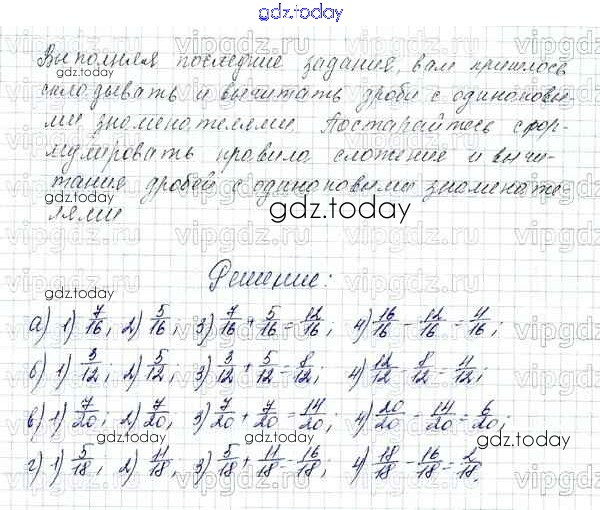 gdz.today
Выполняя последние задания, вам пришлось
складывать и вычитать дроби с одинаковы-
ми знаменателями. Постарайтесь сфор-
мулировать правила сложение и вычи-
тание дробей с одинаковыми знаменате-
лями
gdz.today
Решение:
а) 1) 7/16; 2) 5/16; 3) 7/16 + 5/16 = 12/16; 4) 16/16 - 12/16 = 4/16;
б) 1) 3/12; 2) 5/12; 3) 3/12 + 5/12 = 8/12; 4) 12/12 - 8/12 = 4/12;
в) 1) 7/20; 2) 7/20; 3) 7/20 + 7/20 = 14/20; 4) 20/20 - 14/20 = 6/20;
г) 1) 5/18; 2) 11/18; 3) 5/18 + 11/18 = 16/18; 4) 18/18 - 16/18 = 2/18.